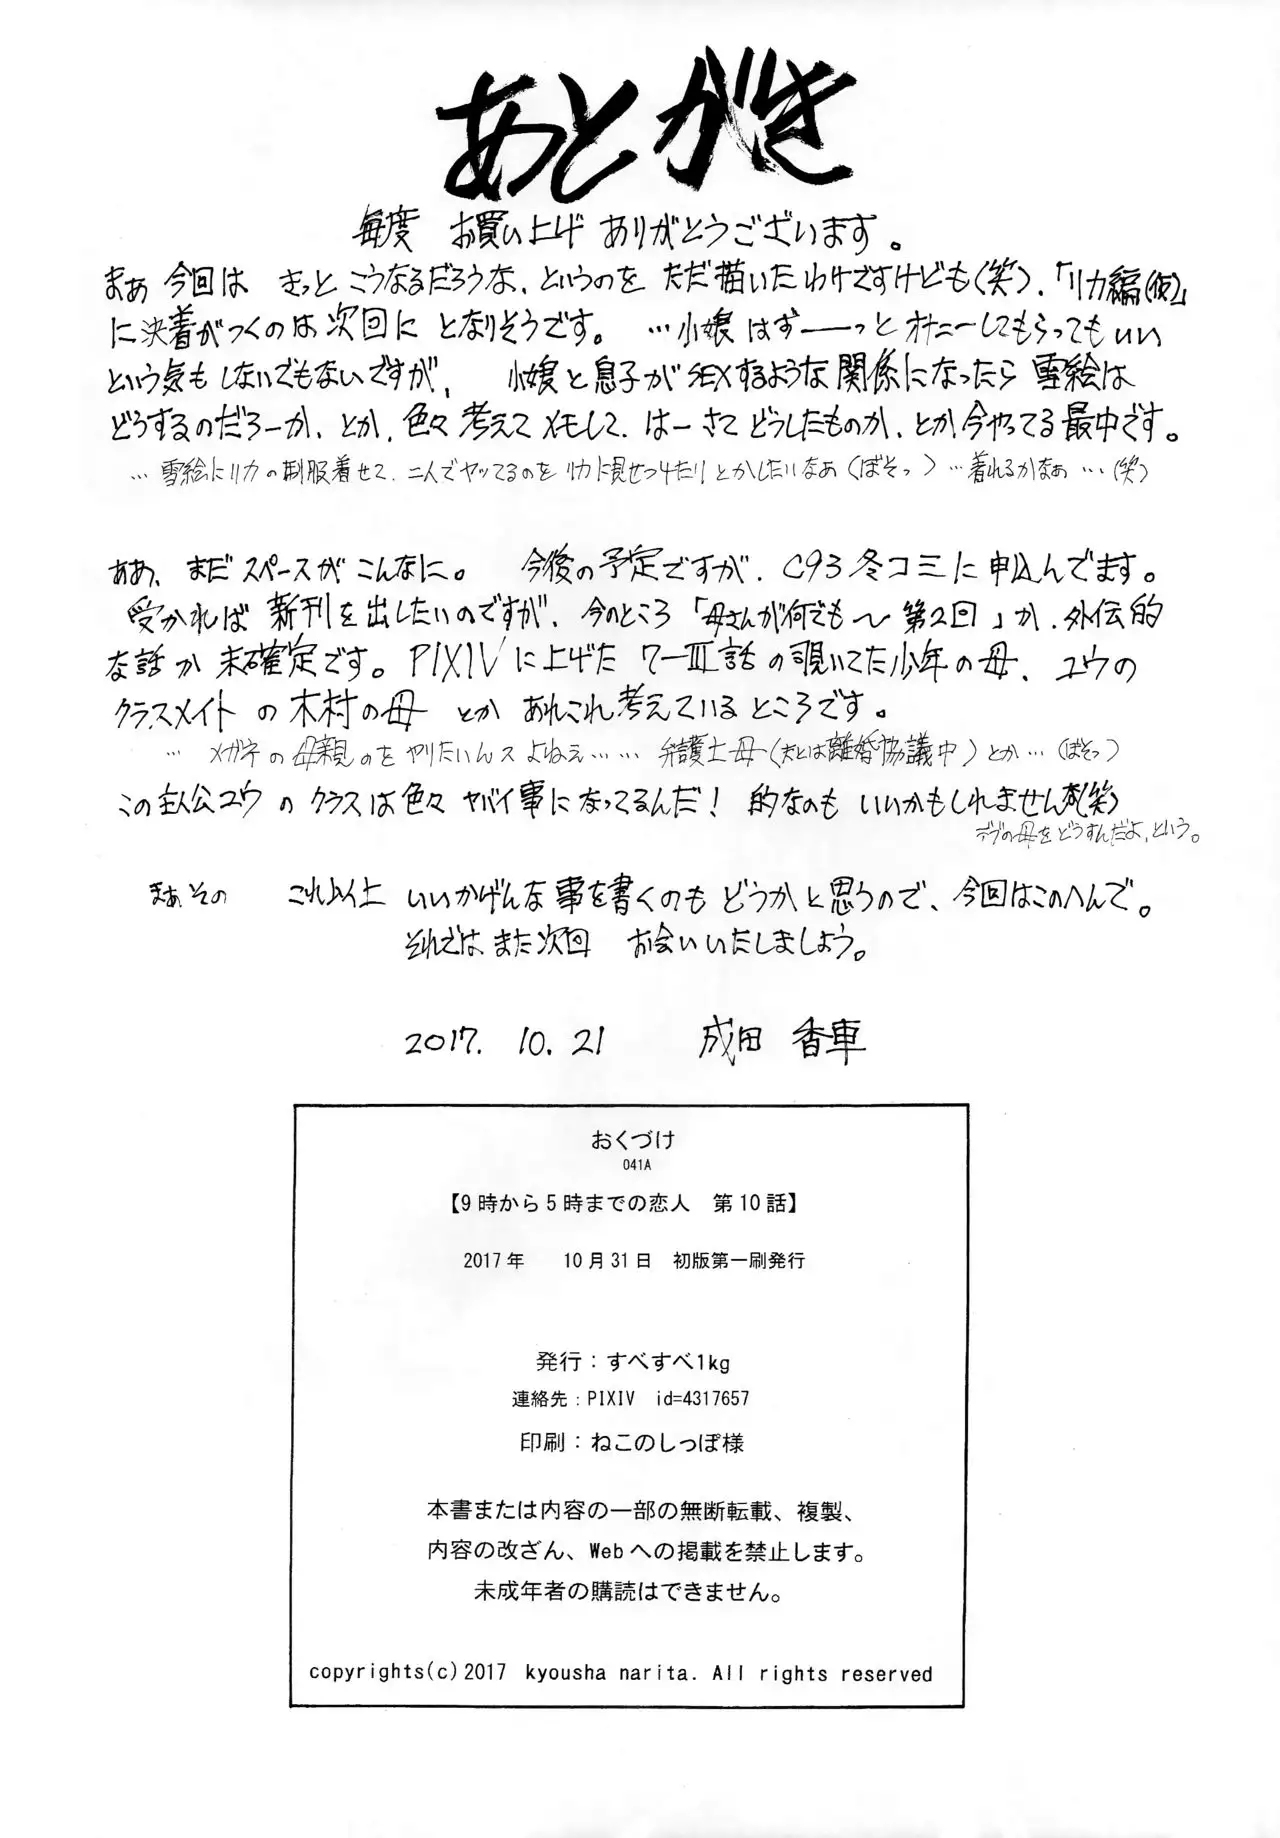 あとがき
毎度 お買い上げ ありがとうございます。
まぁ 今回は きっと こうなるだろうな、というのを ただ描いたわけですけども(笑)、「リカ編(仮)」
に決着がつくのは次回に となりそうです。 …小娘はずーーっと オナニーしてもらってもいい
という気も しないでもないですが、 小娘と息子がSEXするような関係になったら 雪絵は
どうするのだろーか、とか、色々考えてメモして、はーさてどうしたものか、とか今やってる最中です。
…雪絵にリカの制服着せて、二人でヤッてるのを リカに見せつけたりとかしたいなぁ(ぼそっ) …着れるかなぁ…(笑)
ああ、まだスペースがこんなに。 今後の予定ですが、C93冬コミに申込んでます。
受かれば 新刊を出したいのですが、今のところ「母さんが何でも〜 第2回」か、外伝的
な話か未確定です。PIXIVに上げた 7-III話の覗いてた少年の母、ユウの
クラスメイトの木村の母 とか あれこれ考えているところです。
… メガネの母親のをやりたいんスよねぇ…… 弁護士母(夫とは離婚協議中)とか…(ぼそっ)
この主人公ユウ の クラスは色々ヤバイ事になってるんだ! 的なのも いいかもしれませんが(笑)
デブの母をどうすんだよ、という。
まぁ、その これ以上 いいかげんな事を書くのも どうかと思うので、今回はこのへんで。
それではまた次回 お会いいたしましょう。
2017. 10. 21 成田 香車
おくづけ
041A
【9時から5時までの恋人 第10話】
2017年 10月31日 初版第一刷発行
発行：すべすべ1kg
連絡先：PIXIV id=4317657
印刷：ねこのしっぽ様
本書または内容の一部の無断転載、複製、
内容の改ざん、Webへの掲載を禁止します。
未成年者の購読はできません。
copyrights(c)2017 kyousha narita. All rights reserved